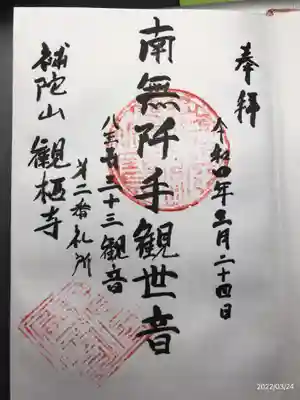 奉拝
令和四年三月二十四日
南無阡手観世音
八王子三十三観音
第二拾札所
補陀山 観栖寺
2022/03/24